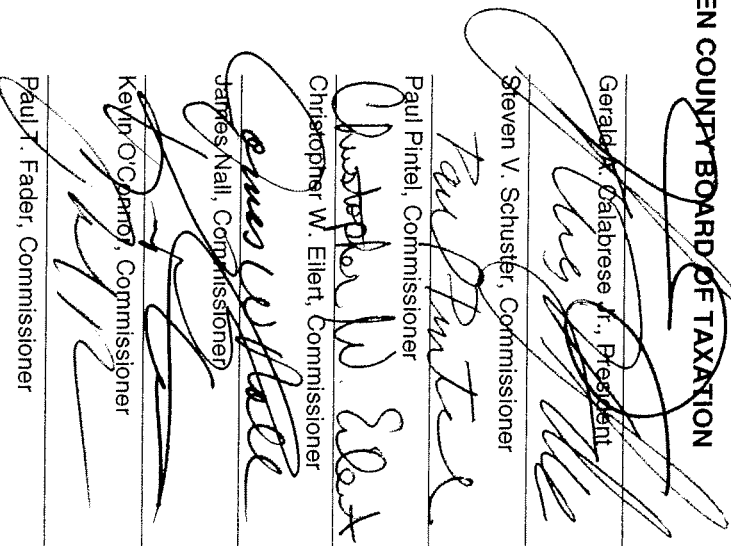 EN COUNTY BOARD OF TAXATION
Gerald A. Calabrese Jr., President
Steven V. Schuster, Commissioner
Paul Pintel
Paul Pintel, Commissioner
Christopher W. Eilert
Christopher W. Eilert, Commissioner
James W Nall
James Nall, Commissioner
Kevin O'Connor, Commissioner
Paul T. Fader, Commissioner